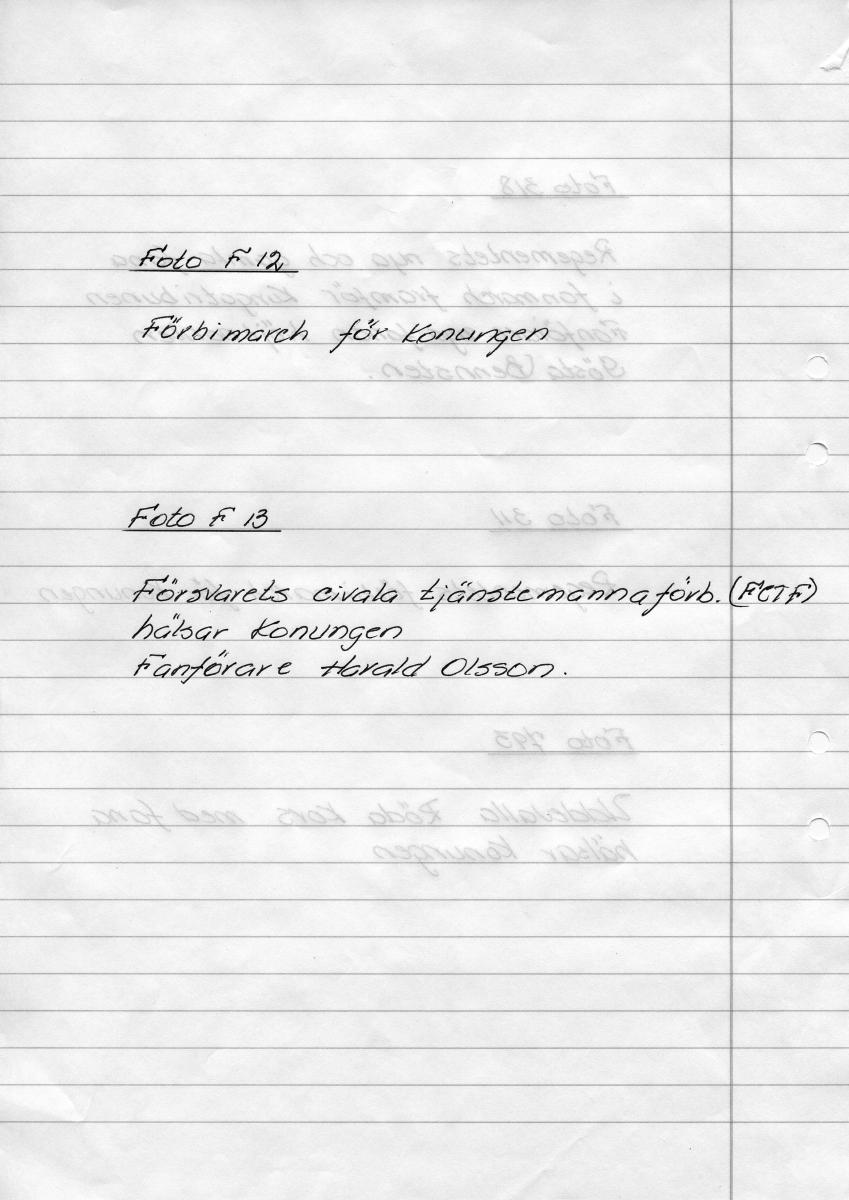 Foto F 12
Förbimarch för Konungen
Foto F 13
Försvarets civala tjänstemannaförb. (FCTF)
hälsar Konungen
Fanförare Harald Olsson.